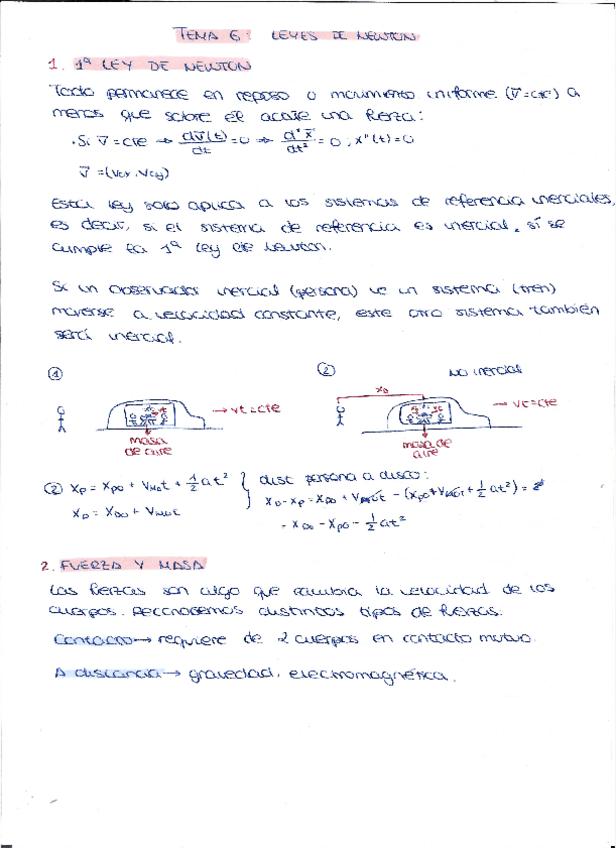 TEMA 6: LEYES DE NEWTON
1. 1ª LEY DE NEWTON
Todo permanece en reposo o movimiento uniforme (v⃗=cte) a
menos que sobre él actúe una fuerza:
· Si v⃗=cte → dv⃗(t)/dt = 0 → d²x⃗/dt² = 0; x''(t)=0
v⃗ = (vcx, vcy)
Esta ley solo aplica a los sistemas de referencia inerciales,
es decir, si el sistema de referencia es inercial, sí se
cumple la 1ª Ley de Newton.
Si un observador inercial (persona) ve un sistema (tren)
moverse a velocidad constante, este otro sistema también
será inercial.
① ② NO inercial
x₀
→ vt=cte → vt=cte
masa de aire masa de aire
② Xp = Xpo + V t + ½at² { dist persona a disco:
XD = XDo + V t XD-Xp = + V t - (Xpo + V t + ½at²) =
= XDo - Xpo - ½at²
2. FUERZA Y MASA
Las fuerzas son algo que cambia la velocidad de los
cuerpos. Reconocemos distintos tipos de fuerzas.
Contacto → requiere de 2 cuerpos en contacto mutuo.
A distancia → gravedad, electromagnética.